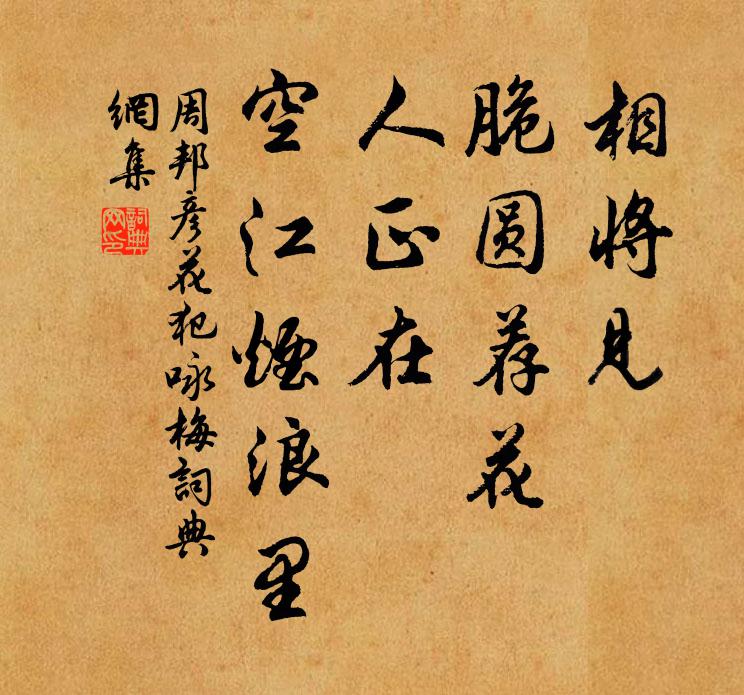 相将見
脆圆荐花
人正在
空江煙浪里
周邦彦花犯咏梅詞典
網集
詞典
网印